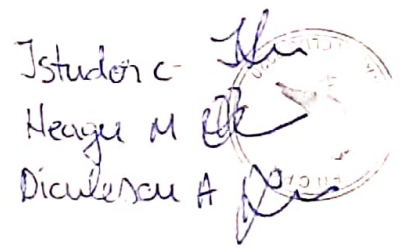 Istudor C
Neagu M
Diculescu A